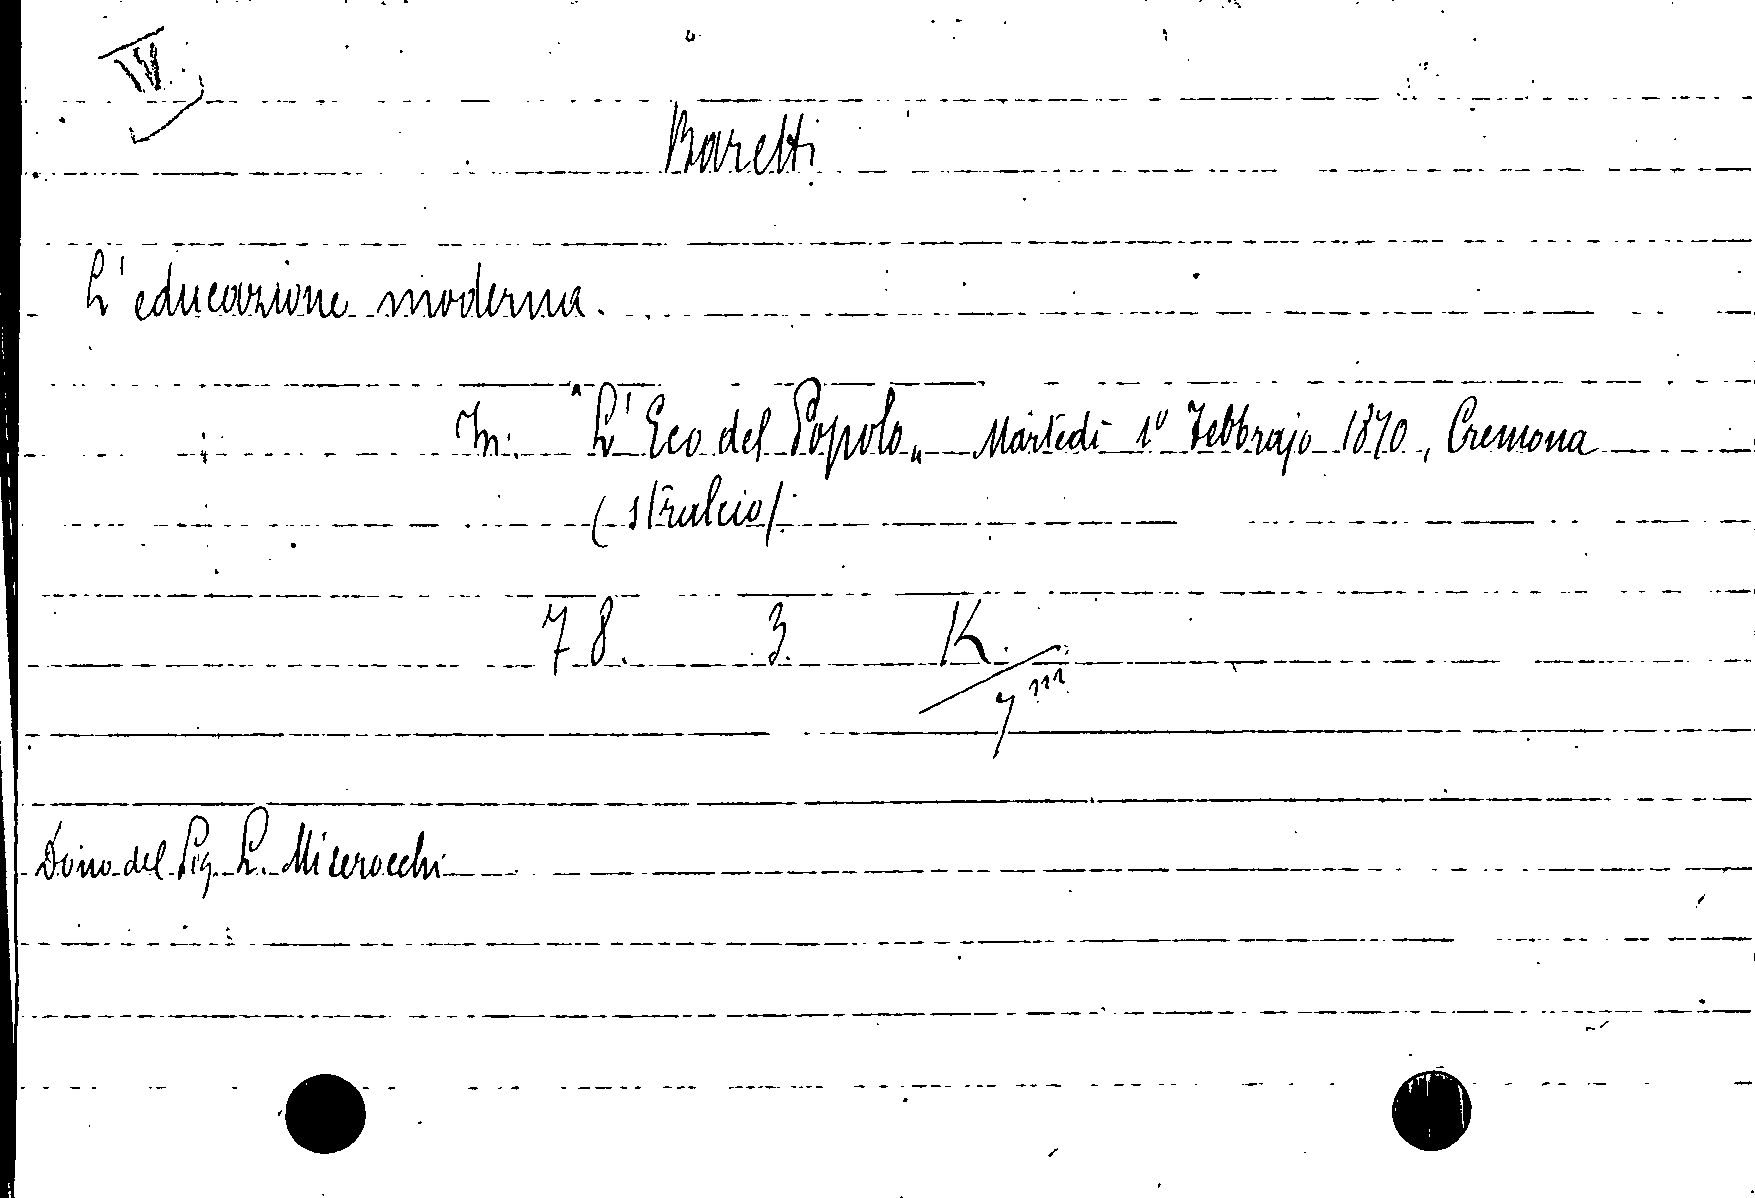 IV
Baretti
L'educazione moderna.
In: "L'Eco del Popolo„ Martedì 1º Febbrajo 1870, Cremona
(stralcio).
78. 3. K.
7 m
Dono del Sig. L. Miserocchi